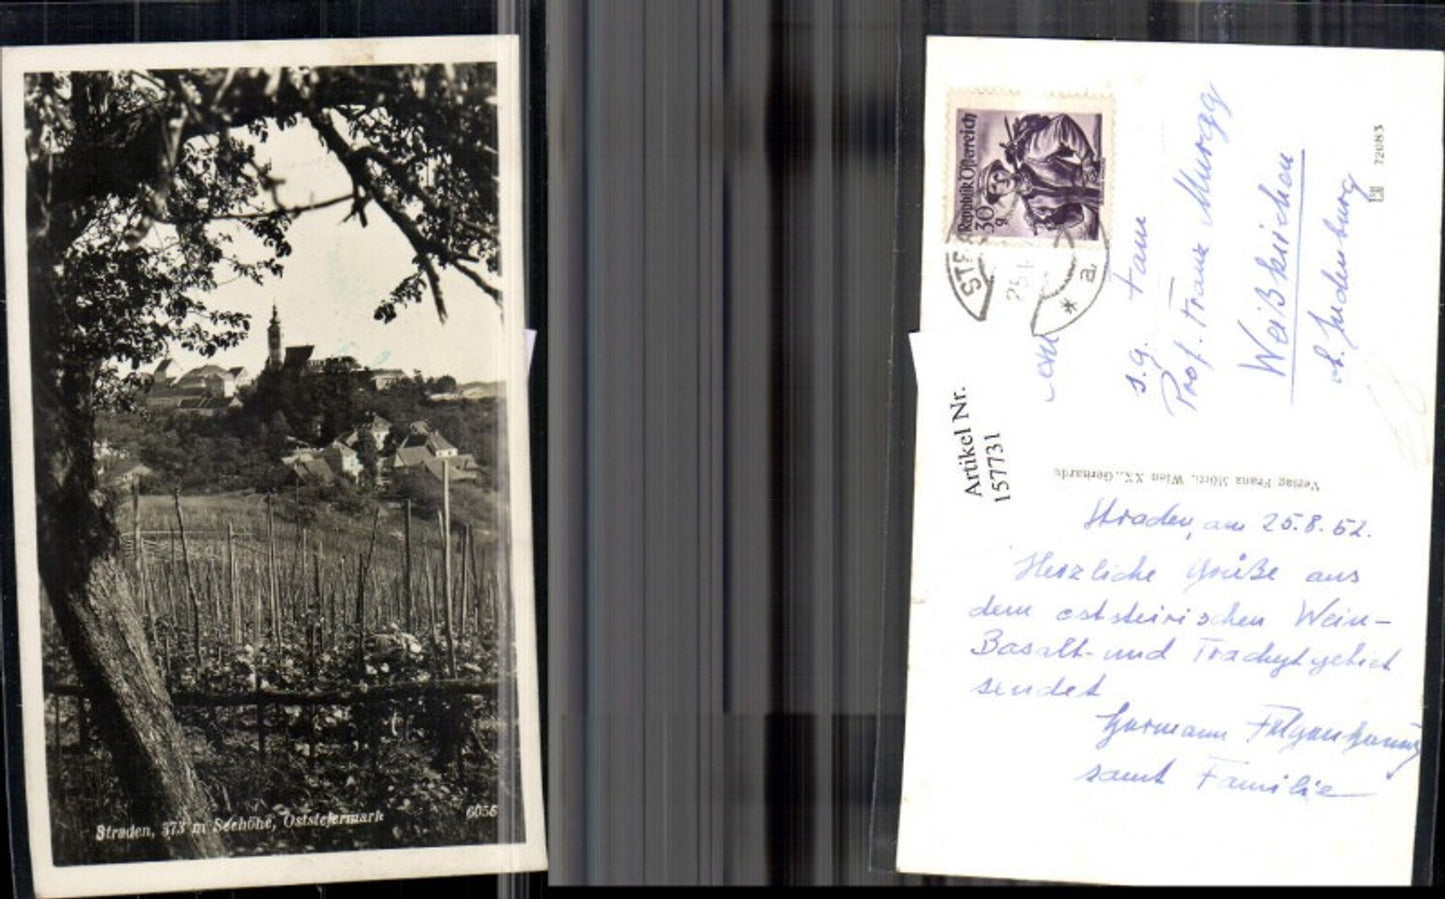 Straden, 373 m Seehöhe, Oststeiermark
6056
Republik Österreich
30
g
25.
* a
Artikel Nr.
157731
s. g. Fam
Prof. Franz Muregg
Weißkirchen
b. Judenburg
72083
Verlag Franz Mörtl, Wien XX., Gerhardu
Straden, am 25.8.52.
Herzliche Grüße aus
dem oststeirischen Wein-
Basalt- und Trachytgebiet
sendet
Hermann
samt Familie